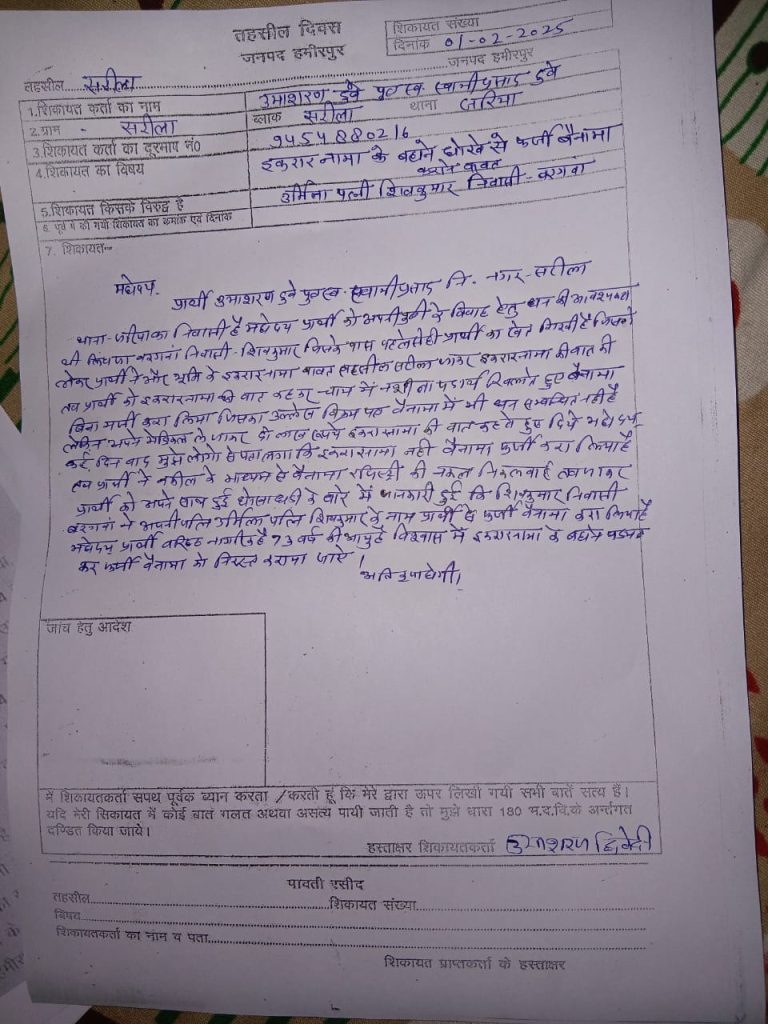 तहसील दिवस
जनपद हमीरपुर
शिकायत संख्या
दिनांक 01-02-2025
जनपद हमीरपुर
तहसील.... सरीला
1.शिकायत कर्ता का नाम उमाशरण दुबे पुत्र स्व स्वामीप्रसाद दुबे
2.ग्राम - सरीला ब्लाक सरीला थाना जरिया
3.शिकायत कर्ता का दूरभाष नं0 9454880216
4.शिकायत का विषय इकरारनामा के बहाने धोखे से फर्जी बैनामा
कराने बावत
5.शिकायत किसके विरुद्ध है उर्मिला पत्नी शिवकुमार निवासी - बरगवां
6. पूर्व में की गयी शिकायत का क्रमांक एवं दिनांक
7. शिकायत--
महोदय,
प्रार्थी उमाशरण दुबे पुत्र स्व. स्वामीप्रसाद नि. नगर-सरीला
थाना-जरिया का निवासी है महोदय प्रार्थी को अपनी पुत्री के विवाह हेतु धन की आवश्यकता
थी बरगवां निवासी-शिवकुमार जिसके पास पहले से ही प्रार्थी का खेत गिरवी है जिसको
लेकर प्रार्थी ने और भूमि के इकरारनामा बावत तहसील सरीला जाकर इकरारनामा की बात की
तब प्रार्थी को इकरारनामा की बात कहकर चाय में नशीला पदार्थ बैनामा
बिना मर्जी करा लिया जिसका उल्लेख विक्रय पत्र बैनामा में भी धन सम्बन्धित नहीं है
लेकिन ले जाकर दो लाख रूपये इकरारनामा की बात कहते हुए दिये महोदय
कई दिन बाद मुझे लोगो से पता लगा कि इकरारनामा नहीं बैनामा फर्जी करा लिया है
तब प्रार्थी ने वकील के माध्यम से बैनामा रजिस्ट्री की नकल निकलवाई तब जाकर
प्रार्थी को अपने साथ हुई धोखाधडी के बारे में जानकारी हुई कि शिवकुमार निवासी
बरगवां ने अपनी पत्नि उर्मिला पत्नि शिवकुमार के नाम प्रार्थी से फर्जी बैनामा करा लिया है
महोदय प्रार्थी वरिष्ठ नागरिक है 73 वर्ष की आयु है विश्वास में इकरारनामा के बहाने
कर फर्जी बैनामा को निरस्त कराया जाऐ।
अति कृपा होगी।
जांच हेतु आदेश
मैं शिकायतकर्ता सपथ पूर्वक ब्यान करता /करती हूं कि मेरे द्वारा उपर लिखी गयी सभी बातें सत्य हैं।
यदि मेरी सिकायत में कोई बात गलत अथवा असत्य पायी जाती है तो मुझे धारा 180 भ.द.वि.के अर्न्तगत
दण्डित किया जाये।
हस्ताक्षर शिकायतकर्ता उमाशरण द्विवेदी
पावती रसीद
तहसील....शिकायत संख्या....
विषय....
शिकायतकर्ता का नाम व पता....
शिकायत प्राप्तकर्ता के हस्ताक्षर